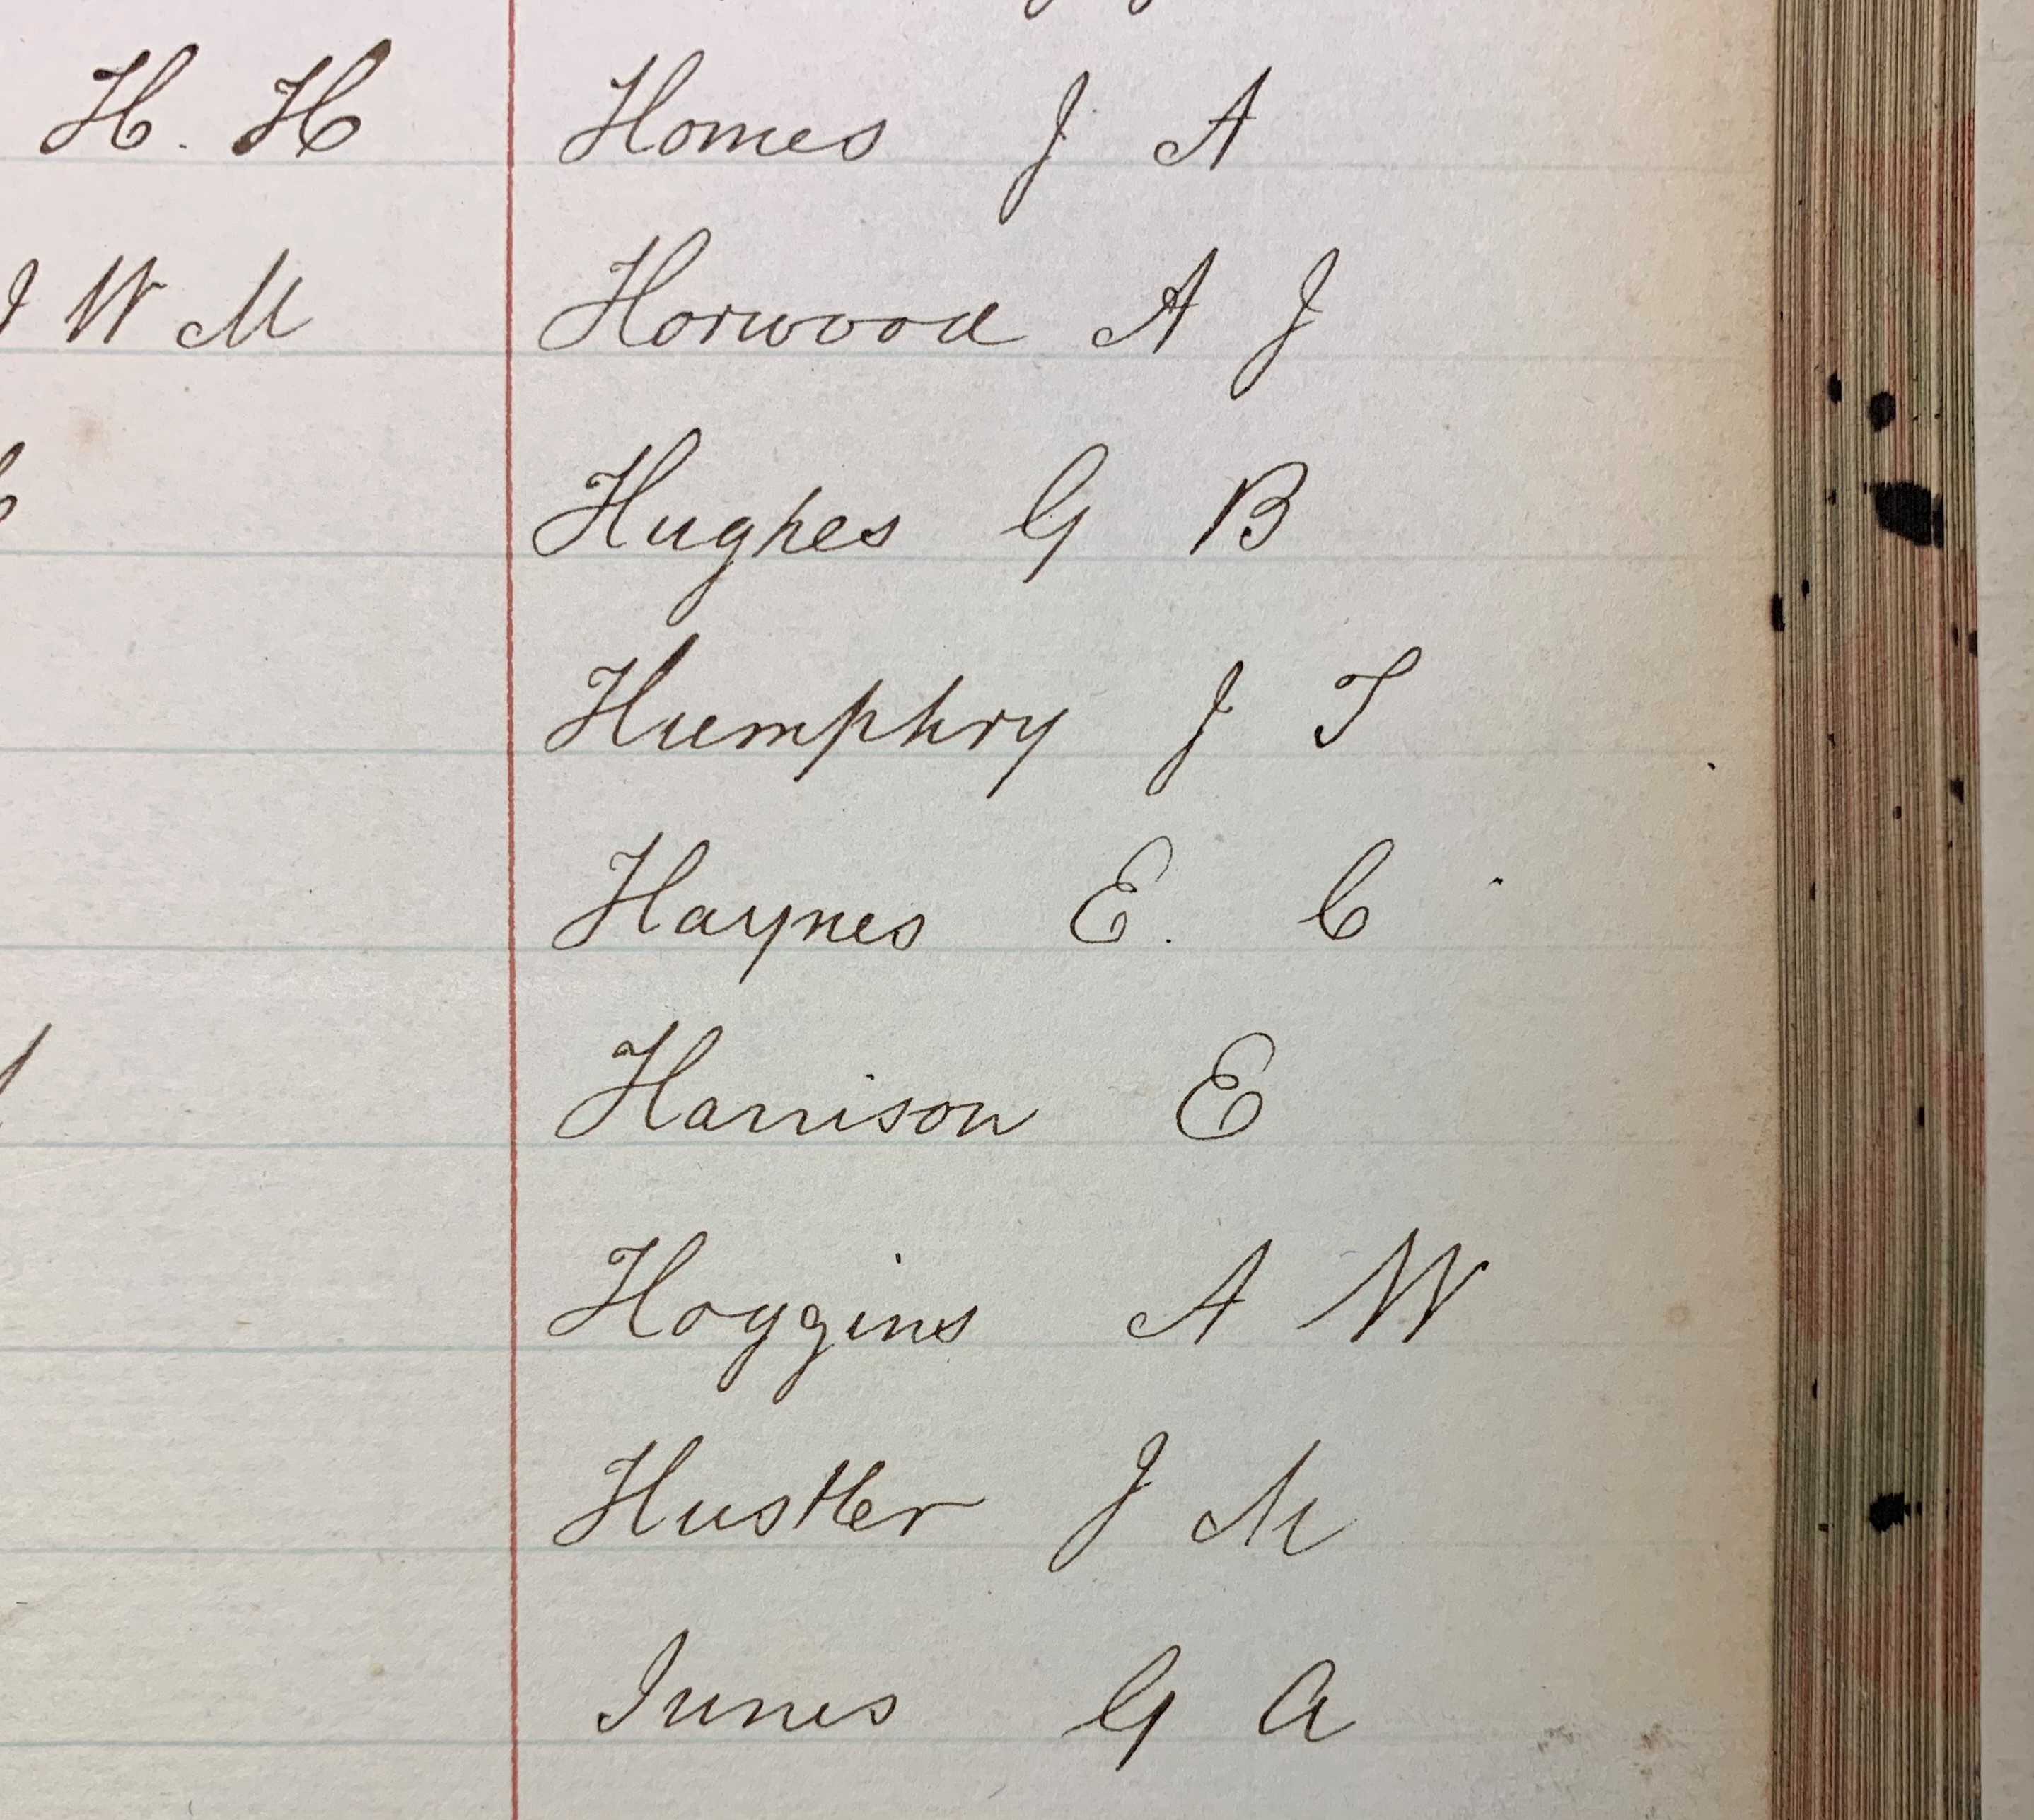 H. H Homes J A
W M Horwood A J
Hughes G B
Humphry J T
Haynes E. C
Harrison E
Hoggins A W
Hustler J M
Innes G A